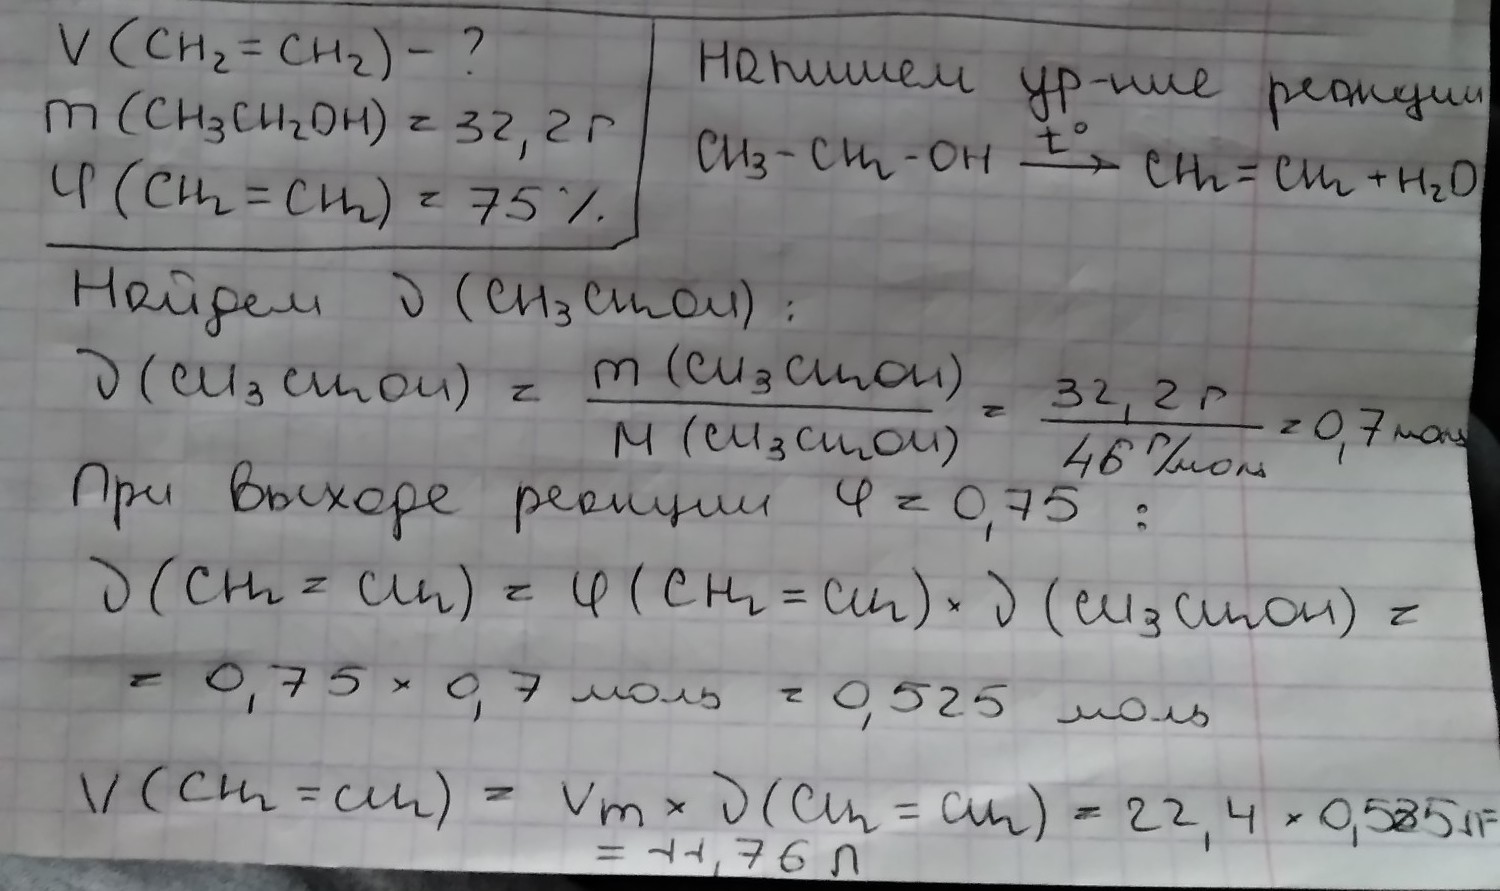 V(CH₂=CH₂) – ?
m(CH₃CH₂OH) = 32,2 г
φ(CH₂=CH₂) = 75%
Напишем ур-ние реакции
CH₃-CH₂-OH —t°→ CH₂=CH₂+H₂O
Найдем ν(CH₃CH₂OH):
ν(CH₃CH₂OH) = m(CH₃CH₂OH)/M(CH₃CH₂OH) = 32,2 г/46 г/моль = 0,7 моль
При выходе реакции φ = 0,75 :
ν(CH₂=CH₂) = φ(CH₂=CH₂)×ν(CH₃CH₂OH) =
= 0,75 × 0,7 моль = 0,525 моль
V(CH₂=CH₂) = Vm × ν(CH₂=CH₂) = 22,4 × 0,525 л=
= 11,76 л